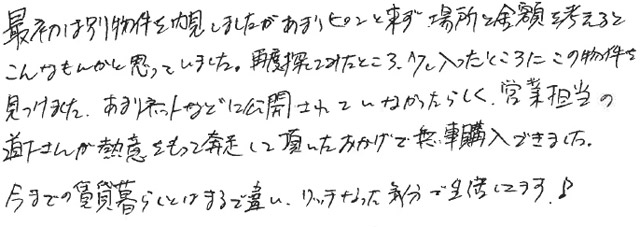 最初は別物件を内見しましたがあまりピンと来ず場所と金額を考えると
こんなもんかと思っていました。再度探してみたところ、少し入ったところにこの物件を
見つけました。あまりネットなどに公開されていなかったらしく、営業担当の
道下さんが熱意をもって奔走して頂いたおかげで無事購入できました。
今までの賃貸暮らしとはまるで違い、リッチなった気分で生活してます♪